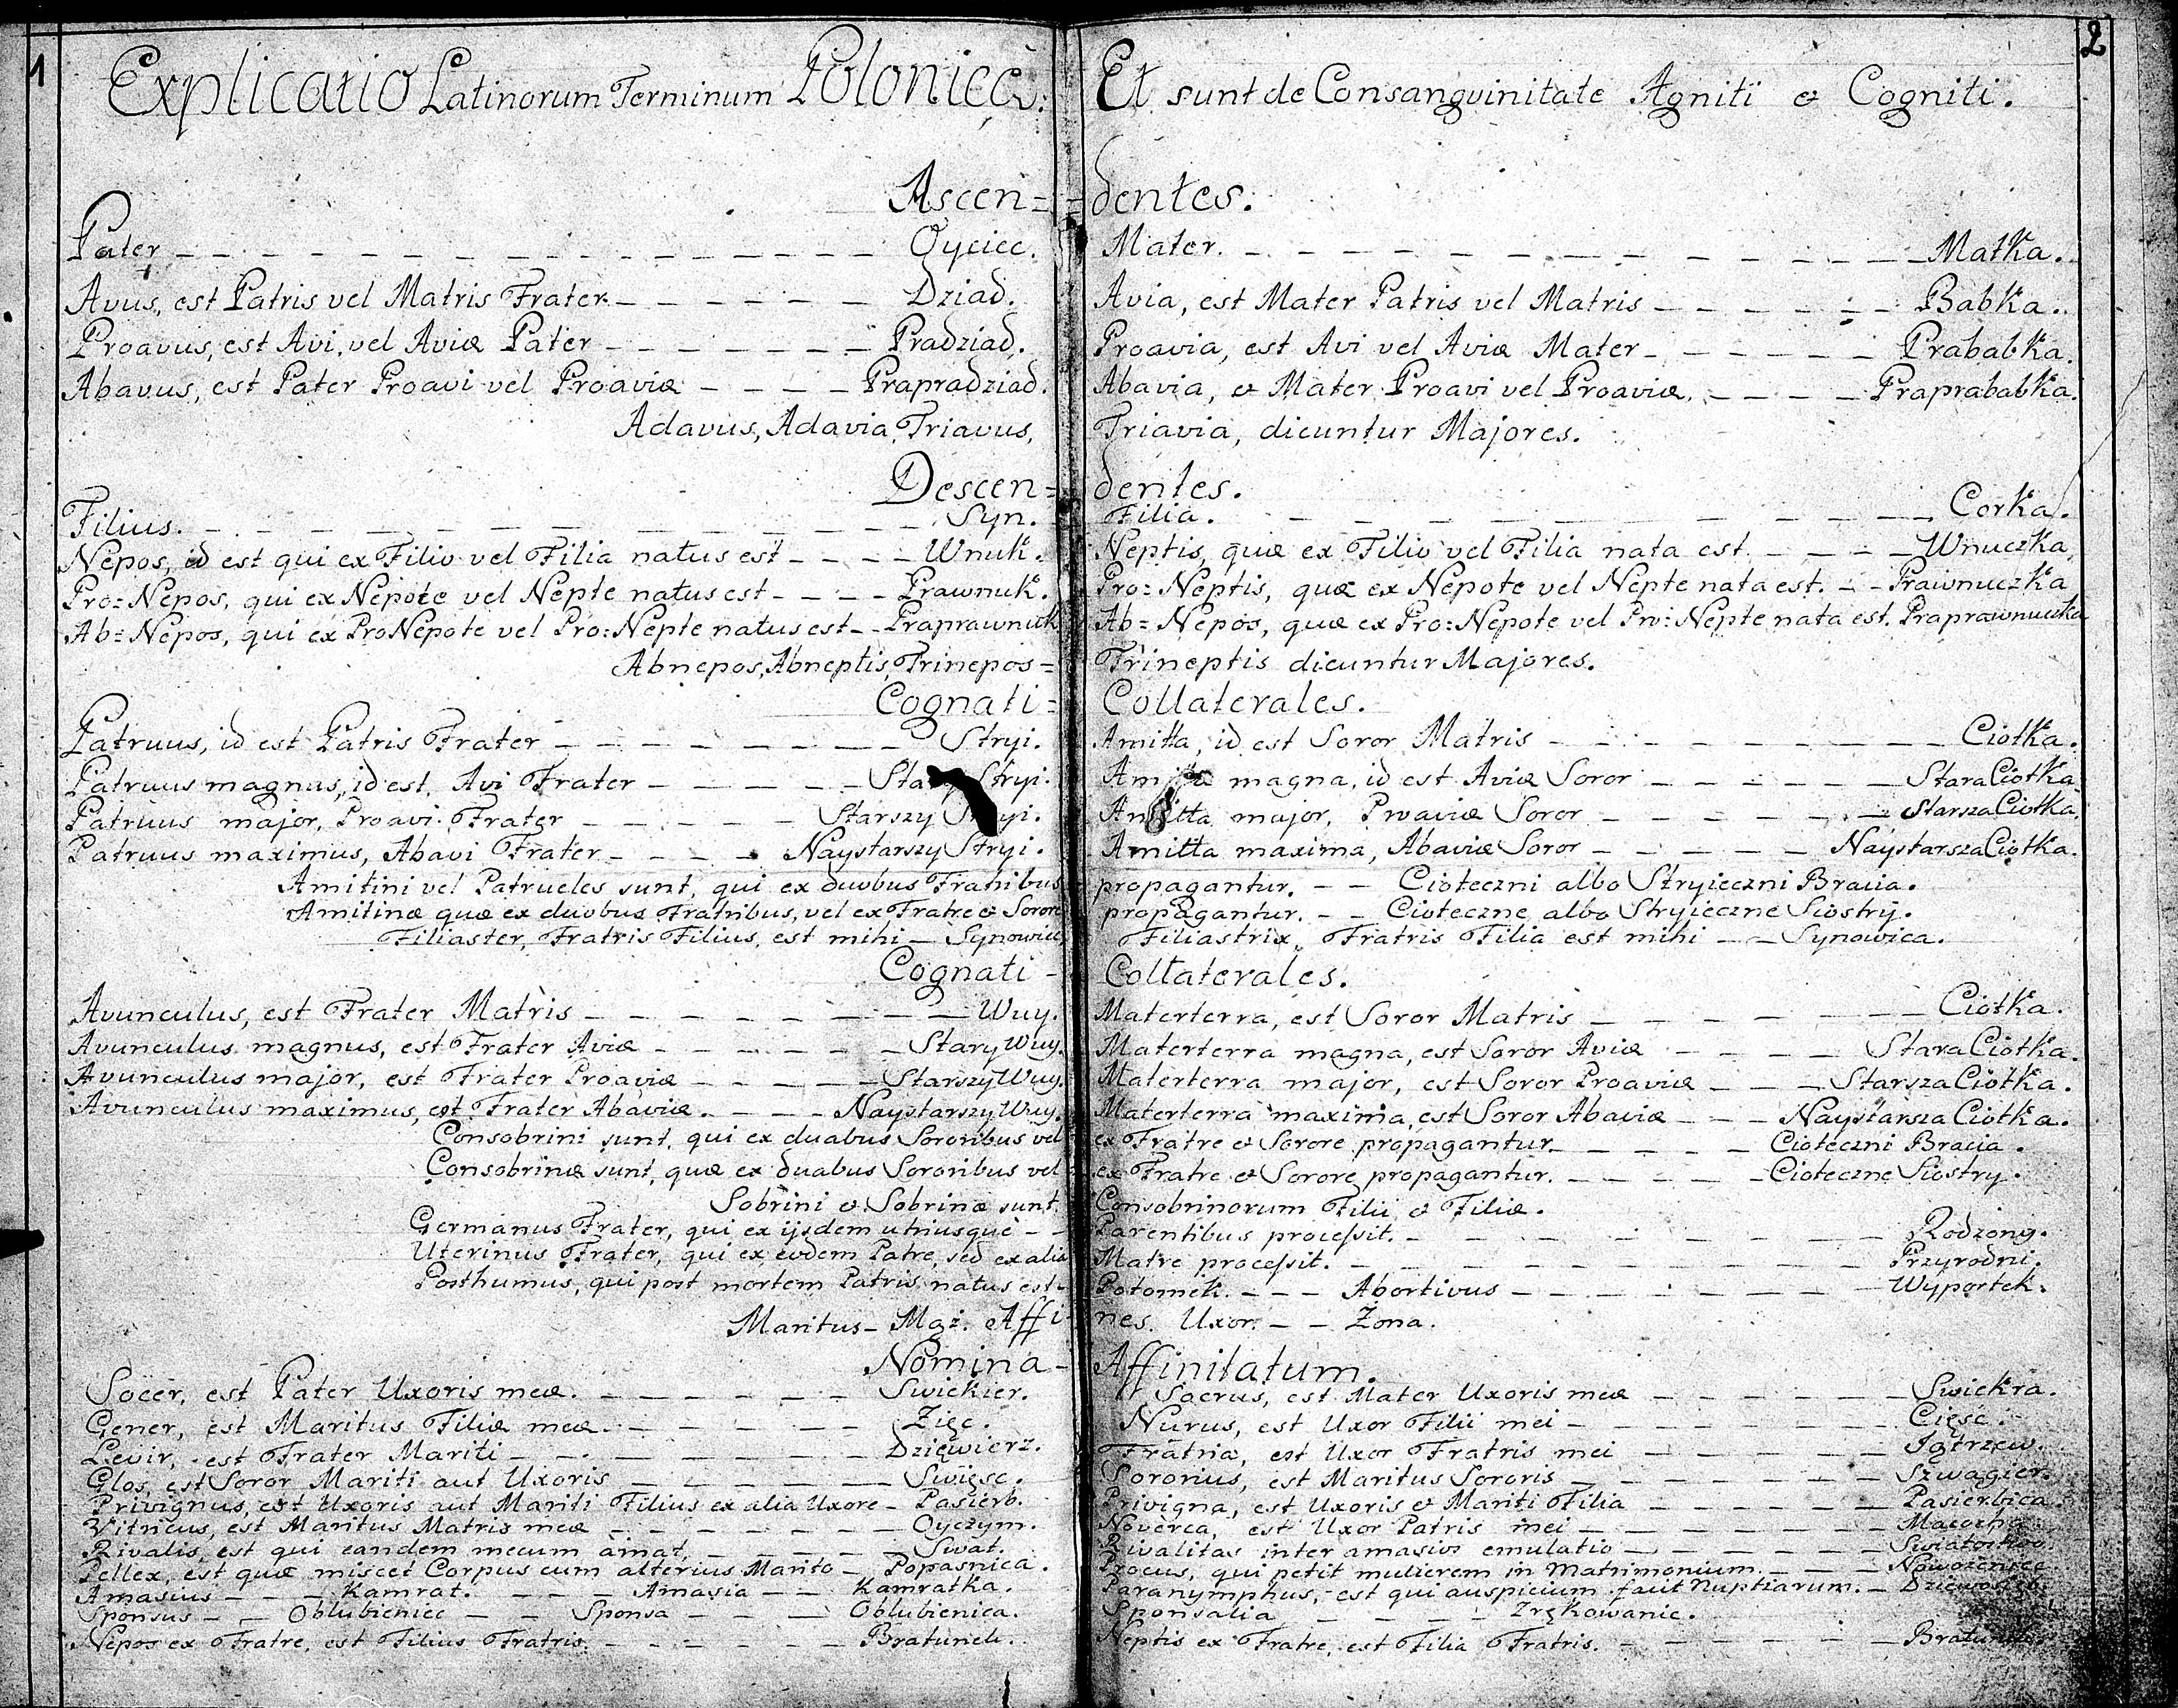 1
Explicatio Latinorum Terminum Polonicè:
Ascen=
Pater — Oyciec.
Avus, est Patris vel Matris Frater — Dziad.
Proavus, est Avi, vel Aviæ Pater — Pradziad.
Abavus, est Pater Proavi vel Proaviæ — Prapradziad.
Adavus, Adavia, Triavus,
Descen=
Filius. — Syn.
Nepos, id est qui ex Filio vel Filia natus est — Wnuk.
Pro=Nepos, qui ex Nepote vel Nepte natus est — Prawnuk.
Ab=Nepos, qui ex ProNepote vel Pro:Nepte natus est — Praprawnuk
Abnepos, Abneptis, Trinepos=
Cognati=
Patruus, id est Patris Frater — Stryi.
Patruus magnus, id est, Avi Frater — Stryi.
Patruus major, Proavi Frater — Starszy
Patruus maximus, Abavi Frater — Naystarszy Stryi.
Amitini vel Patrueles sunt, qui ex duobus Fratribus
Amitinæ quæ ex duobus Fratribus, vel ex Fratre & Sorore
Filiaster, Fratris Filius, est mihi — Synowiec
Cognati -
Avunculus, est Frater Matris — Wuy.
Avunculus magnus, est Frater Aviæ — Stary Wuy.
Avunculus major, est Frater Proaviæ — Starszy Wuy.
Avunculus maximus, est Frater Abaviæ. — Naystarszy Wuy.
Consobrini sunt, qui ex duabus Sororibus vel
Consobrinæ sunt, quæ ex duabus Sororibus vel
Sobrini & Sobrinæ sunt,
Germanus Frater, qui ex ijsdem utriusquè
Uterinus Frater, qui ex eodem Patre, sed ex alia
Posthumus, qui post mortem Patris natus est
Maritus — Mąż. Affi
Nomina -
Socer, est Pater Uxoris meæ. — Swiekier.
Gener, est Maritus Filiæ meæ. — Zięc.
Levir, est Frater Mariti — Dziewierz.
Glos, est Soror Mariti aut Uxoris — Swięsc.
Privignus, est Uxoris aut Mariti Filius ex alia Uxore — Pasierb.
Vitricus, est Maritus Matris meæ — Oyczym.
Rivalis, est qui eandem mecum amat, — Swat.
Pellex, est quæ miscet Corpus cum alterius Marito — Popasnica.
Amasius — Kamrat. — Amasia — Kamratka.
Sponsus — Oblubieniec — Sponsa — Oblubienica.
Nepos ex Fratre, est Filius Fratris. — Bratunek.
2
Et sunt de Consangvinitate Agniti & Cogniti.
dentes.
Mater. — Matka.
Avia, est Mater Patris vel Matris — Babka.
Proavia, est Avi vel Aviæ Mater — Prababka.
Abavia, & Mater Proavi vel Proaviæ. — Praprababka.
Triavia, dicuntur Majores.
dentes.
Filia. — Corka.
Neptis, quæ ex Filio vel Filia nata est. — Wnuczka,
Pro=Neptis, quæ ex Nepote vel Nepte nata est. — Prawnuczka
Ab=Nepos, quæ ex Pro:Nepote vel Pro:Nepte nata est. Praprawnuczka
Trineptis dicuntur Majores.
Collaterales.
Amitta, id est Soror Matris — Ciotka.
magna, id est Aviæ Soror — Stara Ciotka
major, Proaviæ Soror — Starsza Ciotka.
Amitta maxima, Abaviæ Soror — Naystarsza Ciotka.
propagantur. — Cioteczni albo Stryieczni Bracia.
propagantur. — Cioteczne albo Stryieczne Siostry.
Filiastrix, Fratris Filia est mihi — Synowica.
Collaterales.
Materterra, est Soror Matris — Ciotka.
Materterra magna, est Soror Aviæ — Stara Ciotka.
Materterra major, est Soror Proaviæ — Starsza Ciotka.
Materterra maxima, est Soror Abaviæ — Naystarsza Ciotka.
ex Fratre & Sorore propagantur. — Cioteczni Bracia.
ex Fratre & Sorore propagantur. — Cioteczne Siostry.
Consobrinorum Filii & Filiæ.
Parentibus processit. — Rodzony.
Matre processit. — Przyrodni.
Potomek. — Abortivus — Wyportek.
nes. Uxor. — Zona.
Affinitatum.
Socrus, est Mater Uxoris meæ — Swiekra.
Nurus, est Uxor Filii mei — Cięsc.
Fratria, est Uxor Fratris mei — Jątrzew.
Sororius, est Maritus Sororis — Szwagier.
Privigna, est Uxoris & Mariti Filia — Pasierbica.
Noverca, est Uxor Patris mei — Macocha
Rivalitas inter amasios emulatio
Procus, qui petit mulierem in Matrimonium. — Nowozeniec
Paranymphus, est qui auspicium facit Nuptiarum. — Dziewosłęb.
Sponsalia — Zrękowanie.
Neptis ex Fratre, est Filia Fratris.